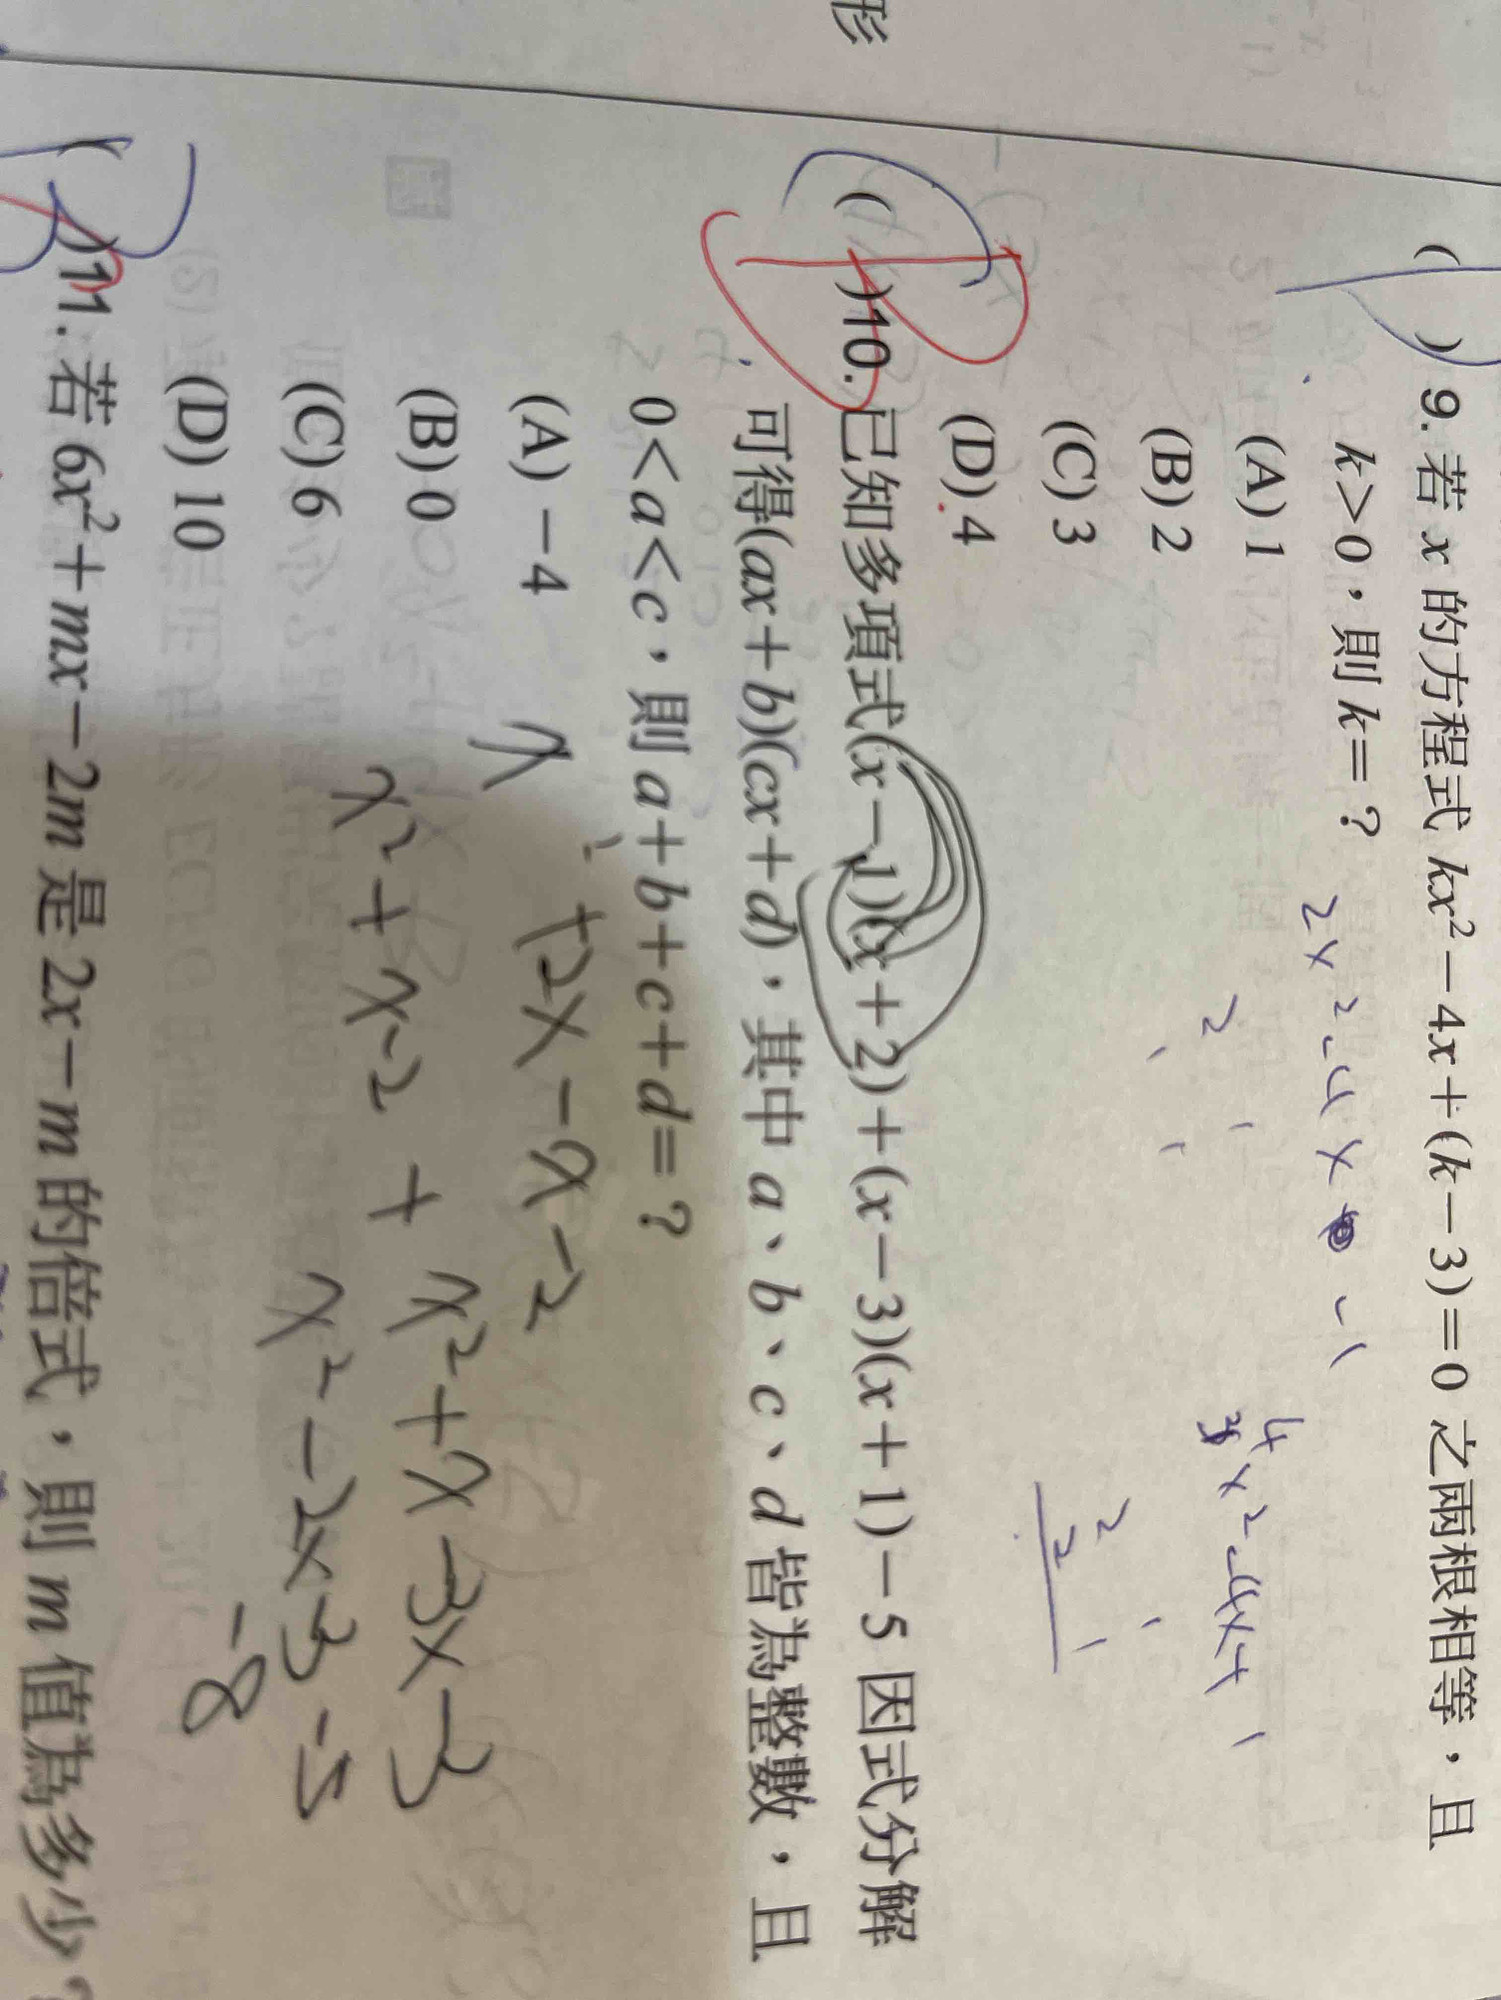 形
( )9.若 x 的方程式 kx²－4x＋(k－3)＝0 之兩根相等，且
k＞0，則 k＝？
2x²-4x -1
(A) 1
(B) 2
(C) 3
(D) 4
4x²-4x+1
( )10.已知多項式(x－1)(x＋2)＋(x－3)(x＋1)－5 因式分解
可得(ax＋b)(cx＋d)，其中 a、b、c、d 皆為整數，且
0＜a＜c，則 a＋b＋c＋d＝？
(A)－4
(B) 0
(C) 6
(D) 10
+2x-x-2
x²+x-2 + x²+x-3x-3
x²-2x-3-5
-8
( )11.若 6x²＋mx－2m 是 2x－m 的倍式，則 m 值為多少？